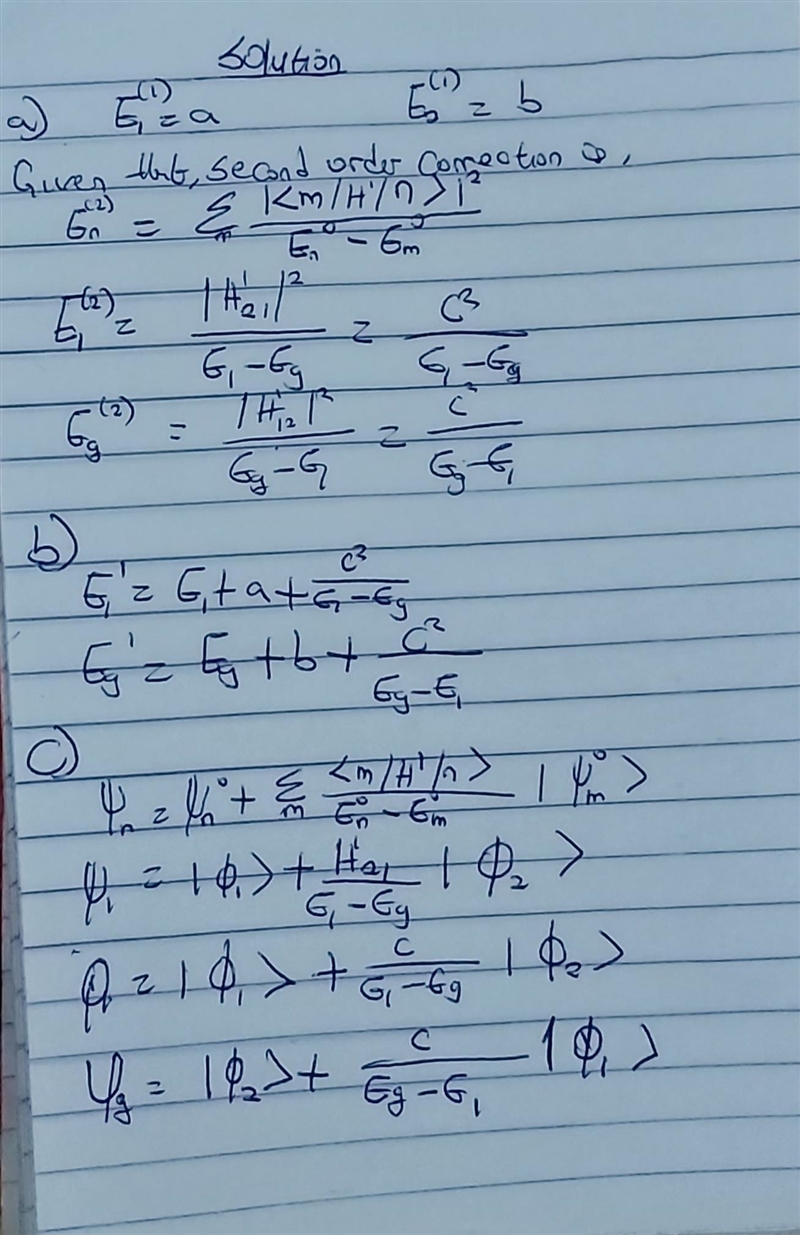 Solution
a) E₁⁽¹⁾ = a E₂⁽¹⁾ = b
Given that, second order correction is,
Eₙ⁽²⁾ = Σₘ |<m/H'/n>|² / (Eₙ⁰ − Eₘ⁰)
E₁⁽²⁾ = |H'₂₁|² / (E₁ − E_g) = c² / (E₁ − E_g)
E_g⁽²⁾ = |H'₁₂|² / (E_g − E₁) = c² / (E_g − E₁)
b)
E₁' = E₁ + a + c² / (E₁ − E_g)
E_g' = E_g + b + c² / (E_g − E₁)
c)
ψₙ = ψₙ⁰ + Σₘ <m/H'/n> / (Eₙ⁰ − Eₘ⁰) |ψₘ⁰>
ψ₁ = |ϕ₁> + H'₂₁ / (E₁ − E_g) |ϕ₂>
ψ₁ = |ϕ₁> + c / (E₁ − E_g) |ϕ₂>
ψ_g = |ϕ₂> + c / (E_g − E₁) |ϕ₁>